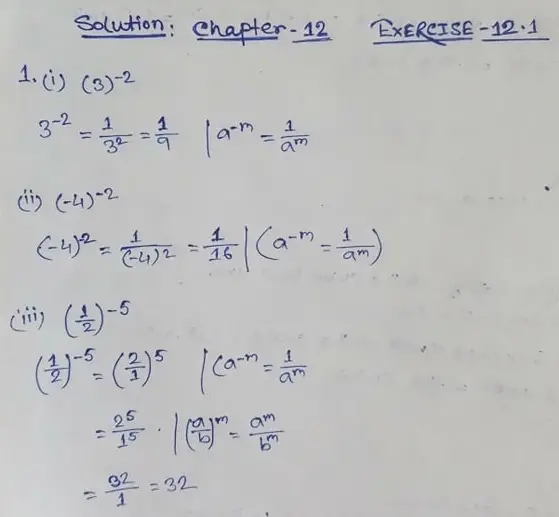 Solution: Chapter-12 EXERCISE-12.1
1. (i) (3)⁻²
3⁻² = 1/3² = 1/9 | a⁻ᵐ = 1/aᵐ
(ii) (-4)⁻²
(-4)⁻² = 1/(-4)² = 1/16 | (a⁻ᵐ = 1/aᵐ)
(iii) (1/2)⁻⁵
(1/2)⁻⁵ = (2/1)⁵ | (a⁻ᵐ = 1/aᵐ
= 2⁵/1⁵ . | (a/b)ᵐ = aᵐ/bᵐ
= 32/1 = 32